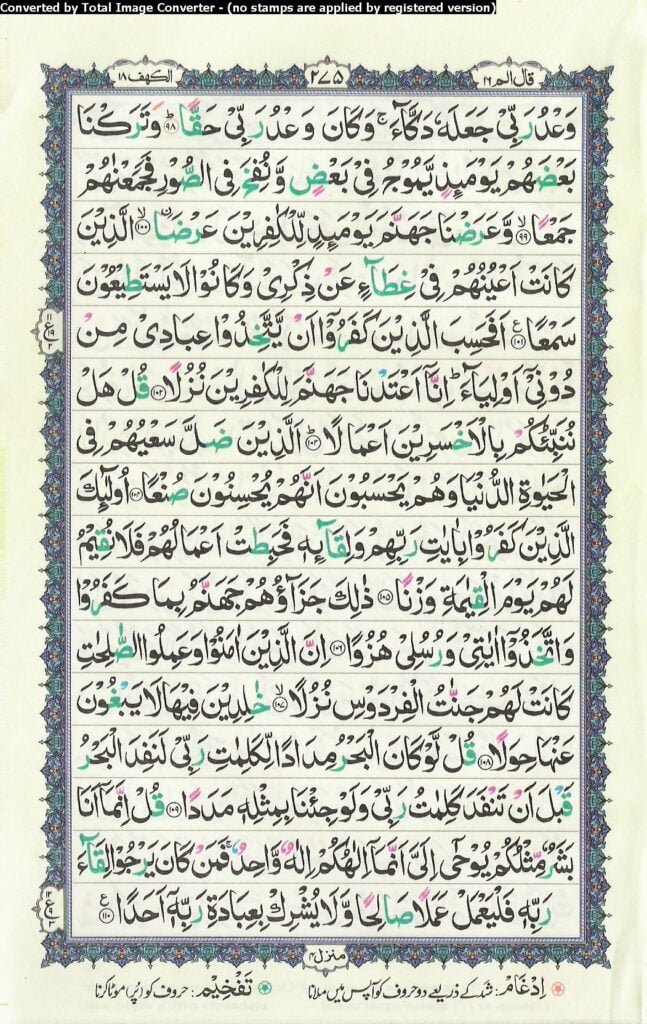 Converted by Total Image Converter - (no stamps are applied by registered version)
قال الم ١٦
٢٧٥
الكهف ١٨
وَعْدُ رَبِّىْ جَعَلَهٗ دَكَّآءَ ۚ وَكَانَ وَعْدُ رَبِّىْ حَقًّا ؕ‏﴿۹۸﴾ وَتَرَكْنَا
بَعْضَهُمْ يَوْمَئِذٍ يَّمُوْجُ فِىْ بَعْضٍ وَّنُفِخَ فِى الصُّوْرِ فَجَمَعْنٰهُمْ
جَمْعًا ۙ‏﴿۹۹﴾ وَّعَرَضْنَا جَهَنَّمَ يَوْمَئِذٍ لِّلْكٰفِرِيْنَ عَرْضَا ۙ‏﴿۱۰۰﴾ۨ الَّذِيْنَ
كَانَتْ اَعْيُنُهُمْ فِىْ غِطَآءٍ عَنْ ذِكْرِىْ وَكَانُوْا لَا يَسْتَطِيْعُوْنَ
سَمْعًا ﴿۱۰۱﴾ اَفَحَسِبَ الَّذِيْنَ كَفَرُوْۤا اَنْ يَّتَّخِذُوْا عِبَادِىْ مِنْ
دُوْنِىْۤ اَوْلِيَآءَ ؕ اِنَّاۤ اَعْتَدْنَا جَهَنَّمَ لِلْكٰفِرِيْنَ نُزُلًا ﴿۱۰۲﴾ قُلْ هَلْ
نُنَبِّئُكُمْ بِالْاَخْسَرِيْنَ اَعْمَالًا ؕ‏﴿۱۰۳﴾ اَلَّذِيْنَ ضَلَّ سَعْيُهُمْ فِى
الْحَيٰوةِ الدُّنْيَا وَهُمْ يَحْسَبُوْنَ اَنَّهُمْ يُحْسِنُوْنَ صُنْعًا ﴿۱۰۴﴾ اُولٰٓئِكَ
الَّذِيْنَ كَفَرُوْا بِاٰيٰتِ رَبِّهِمْ وَلِقَآئِهٖ فَحَبِطَتْ اَعْمَالُهُمْ فَلَا نُقِيْمُ
لَهُمْ يَوْمَ الْقِيٰمَةِ وَزْنًـا ﴿۱۰۵﴾ ذٰلِكَ جَزَآؤُهُمْ جَهَنَّمُ بِمَا كَفَرُوْا
وَاتَّخَذُوْۤا اٰيٰتِىْ وَرُسُلِىْ هُزُوًا ﴿۱۰۶﴾ اِنَّ الَّذِيْنَ اٰمَنُوْا وَعَمِلُوا الصّٰلِحٰتِ
كَانَتْ لَهُمْ جَنّٰتُ الْفِرْدَوْسِ نُزُلًا ۙ‏﴿۱۰۷﴾ خٰلِدِيْنَ فِيْهَا لَا يَبْغُوْنَ
عَنْهَا حِوَلًا ﴿۱۰۸﴾ قُلْ لَّوْ كَانَ الْبَحْرُ مِدَادًا لِّكَلِمٰتِ رَبِّىْ لَنَفِدَ الْبَحْرُ
قَبْلَ اَنْ تَنْفَدَ كَلِمٰتُ رَبِّىْ وَلَوْ جِئْنَا بِمِثْلِهٖ مَدَدًا ﴿۱۰۹﴾ قُلْ اِنَّمَاۤ اَنَا
بَشَرٌ مِّثْلُكُمْ يُوْحٰۤى اِلَىَّ اَنَّمَاۤ اِلٰهُكُمْ اِلٰهٌ وَّاحِدٌ ۚ فَمَنْ كَانَ يَرْجُوْا لِقَآءَ
رَبِّهٖ فَلْيَعْمَلْ عَمَلًا صَالِحًا وَّلَا يُشْرِكْ بِعِبَادَةِ رَبِّهٖۤ اَحَدًا ﴿۱۱۰﴾
منزل ۴
اِدْغَام: شد کے ذریعے دو حروف کو آپس میں ملانا تَفْخِیْم: حروف کو (پُر) موٹا کرنا